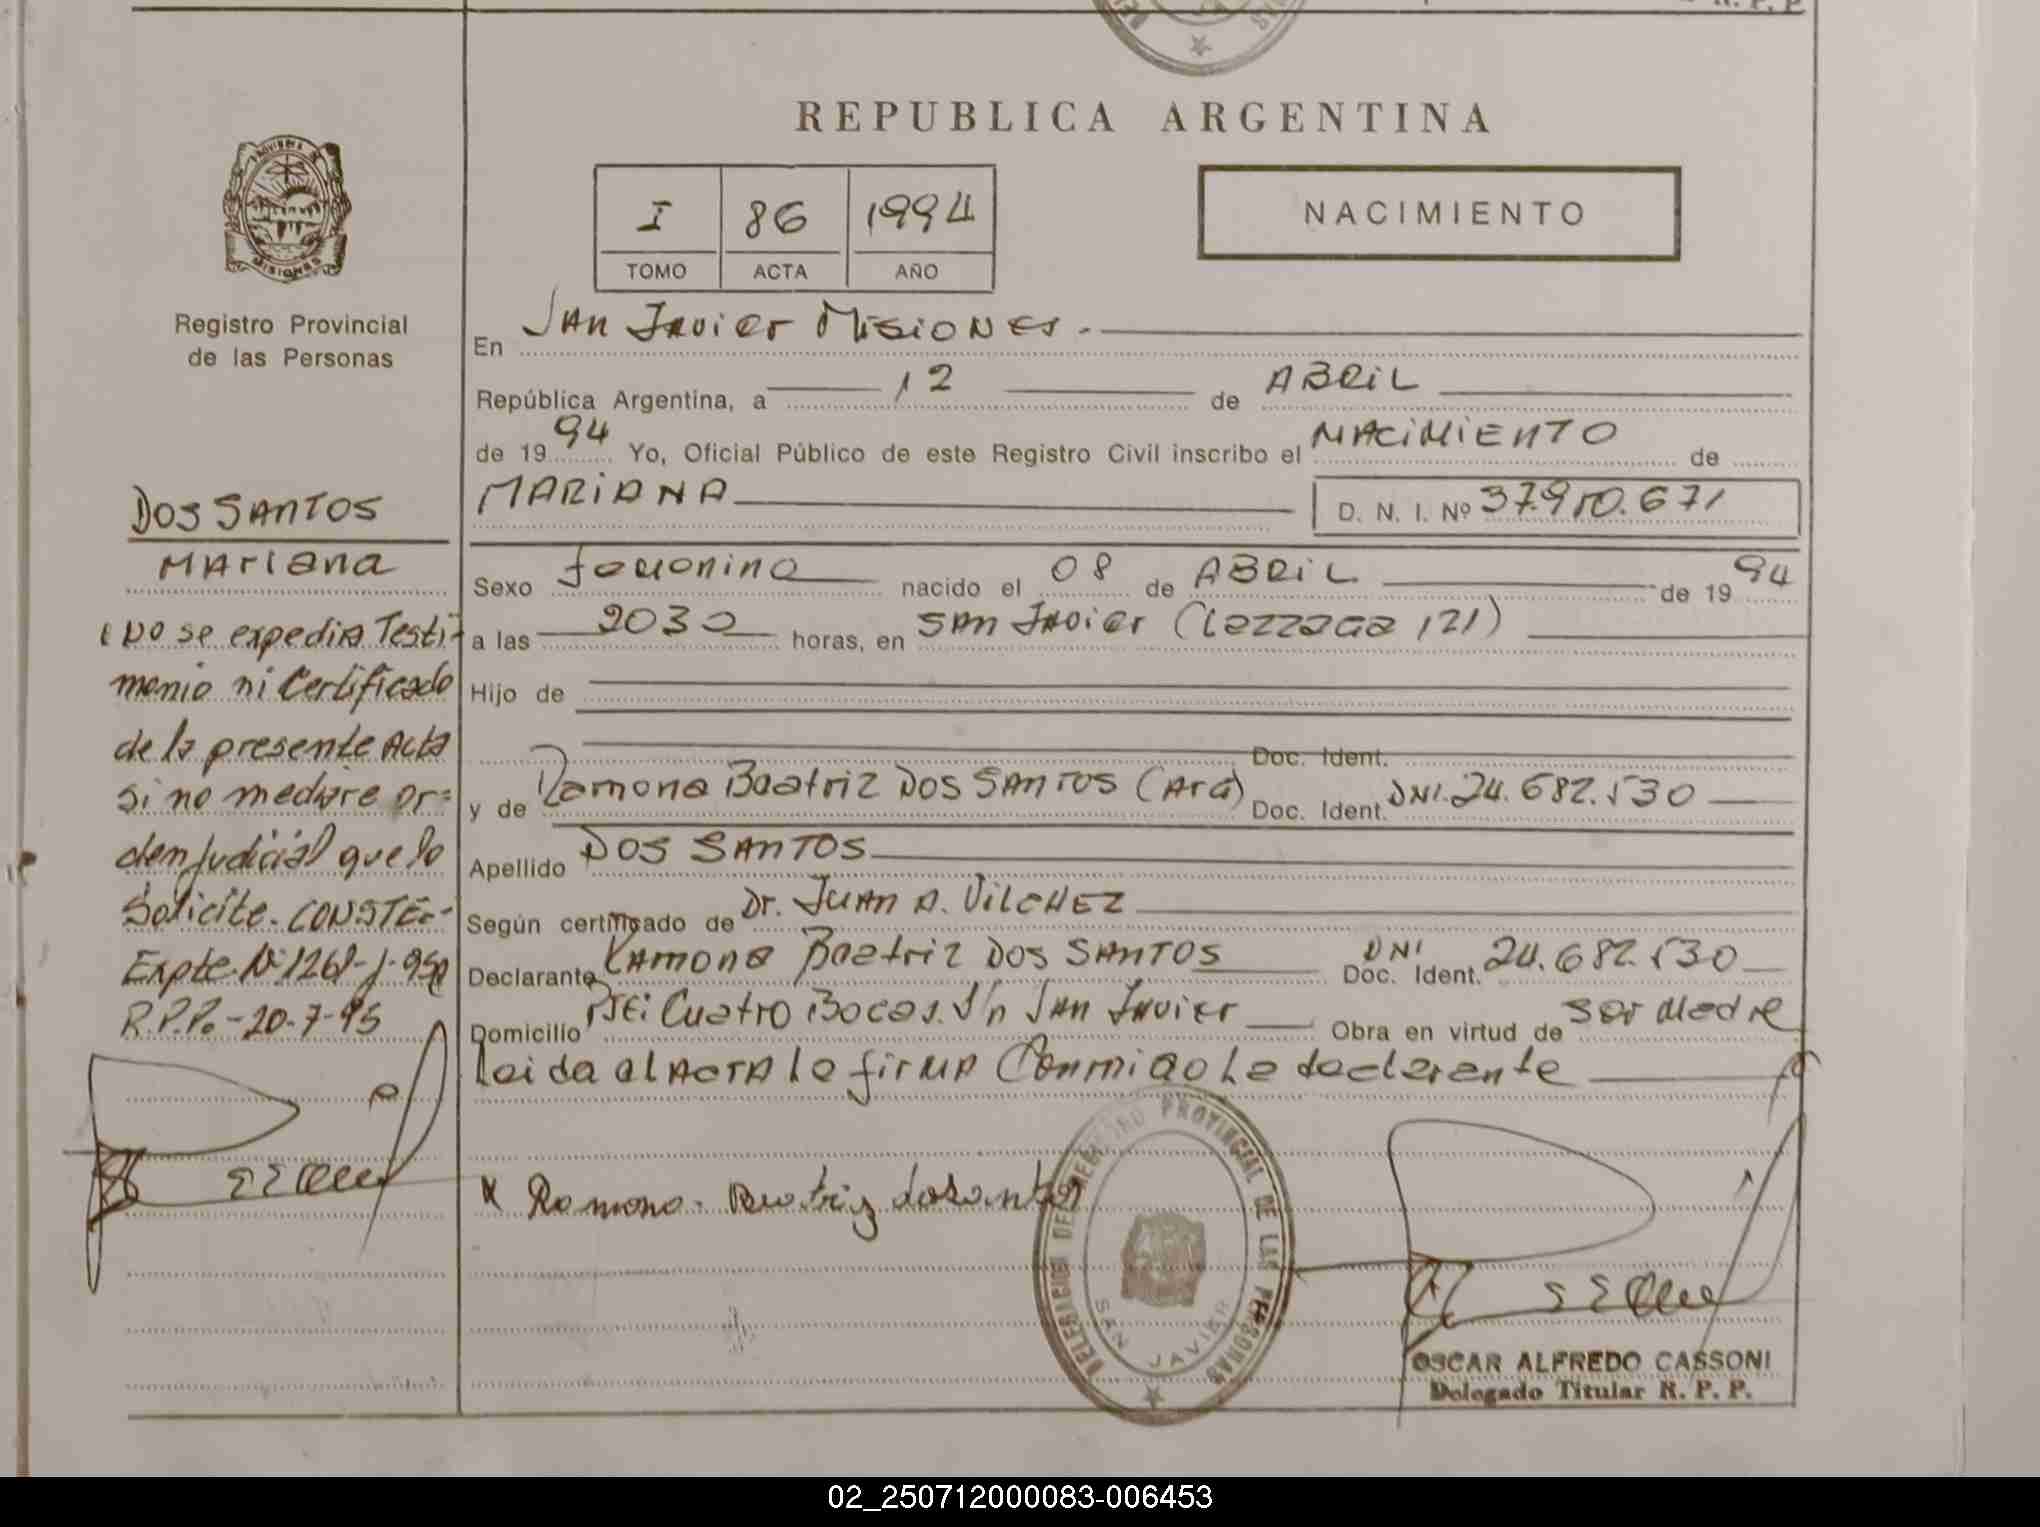 R. P. P.
REPUBLICA ARGENTINA
PROVINCIA DE MISIONES
Registro Provincial
de las Personas
I 86 1994
TOMO ACTA AÑO
NACIMIENTO
En San Javier Misiones.
República Argentina, a 12 de ABRIL
de 1994 Yo, Oficial Público de este Registro Civil inscribo el NACIMIENTO de
MARIANA D. N. I. Nº 37.950.671
Sexo femenino nacido el 08 de ABRIL de 1994
a las 2030 horas, en San Javier (Lezzaga 121)
Hijo de
Doc. Ident.
y de Ramona Beatriz Dos SANTOS (Arg) Doc. Ident. DNI. 24.682.530
Apellido DOS SANTOS
Según certificado de Dr. JUAN A. VILCHEZ
Declarante Ramona Beatriz Dos SANTOS Doc. Ident. DNI 24.682.530
Domicilio Pje: Cuatro Bocas. S/n San Javier Obra en virtud de ser Madre
Leida el ACTA la firma Conmigo la declarante
x Ramona. Beatriz dosantos
DELEGACION DEL REGISTRO PROVINCIAL DE LAS PERSONAS
SAN JAVIER
OSCAR ALFREDO CASSONI
Delegado Titular R. P. P.
DOS SANTOS
Mariana
No se expedira Testi-
monio ni Certificado
de la presente Acta
si no mediare or=
den Judicial que lo
Solicite. CONSTE.-
Expte. Nº 1261-J-95
R.P.P. - 20-7-95
02_250712000083-006453